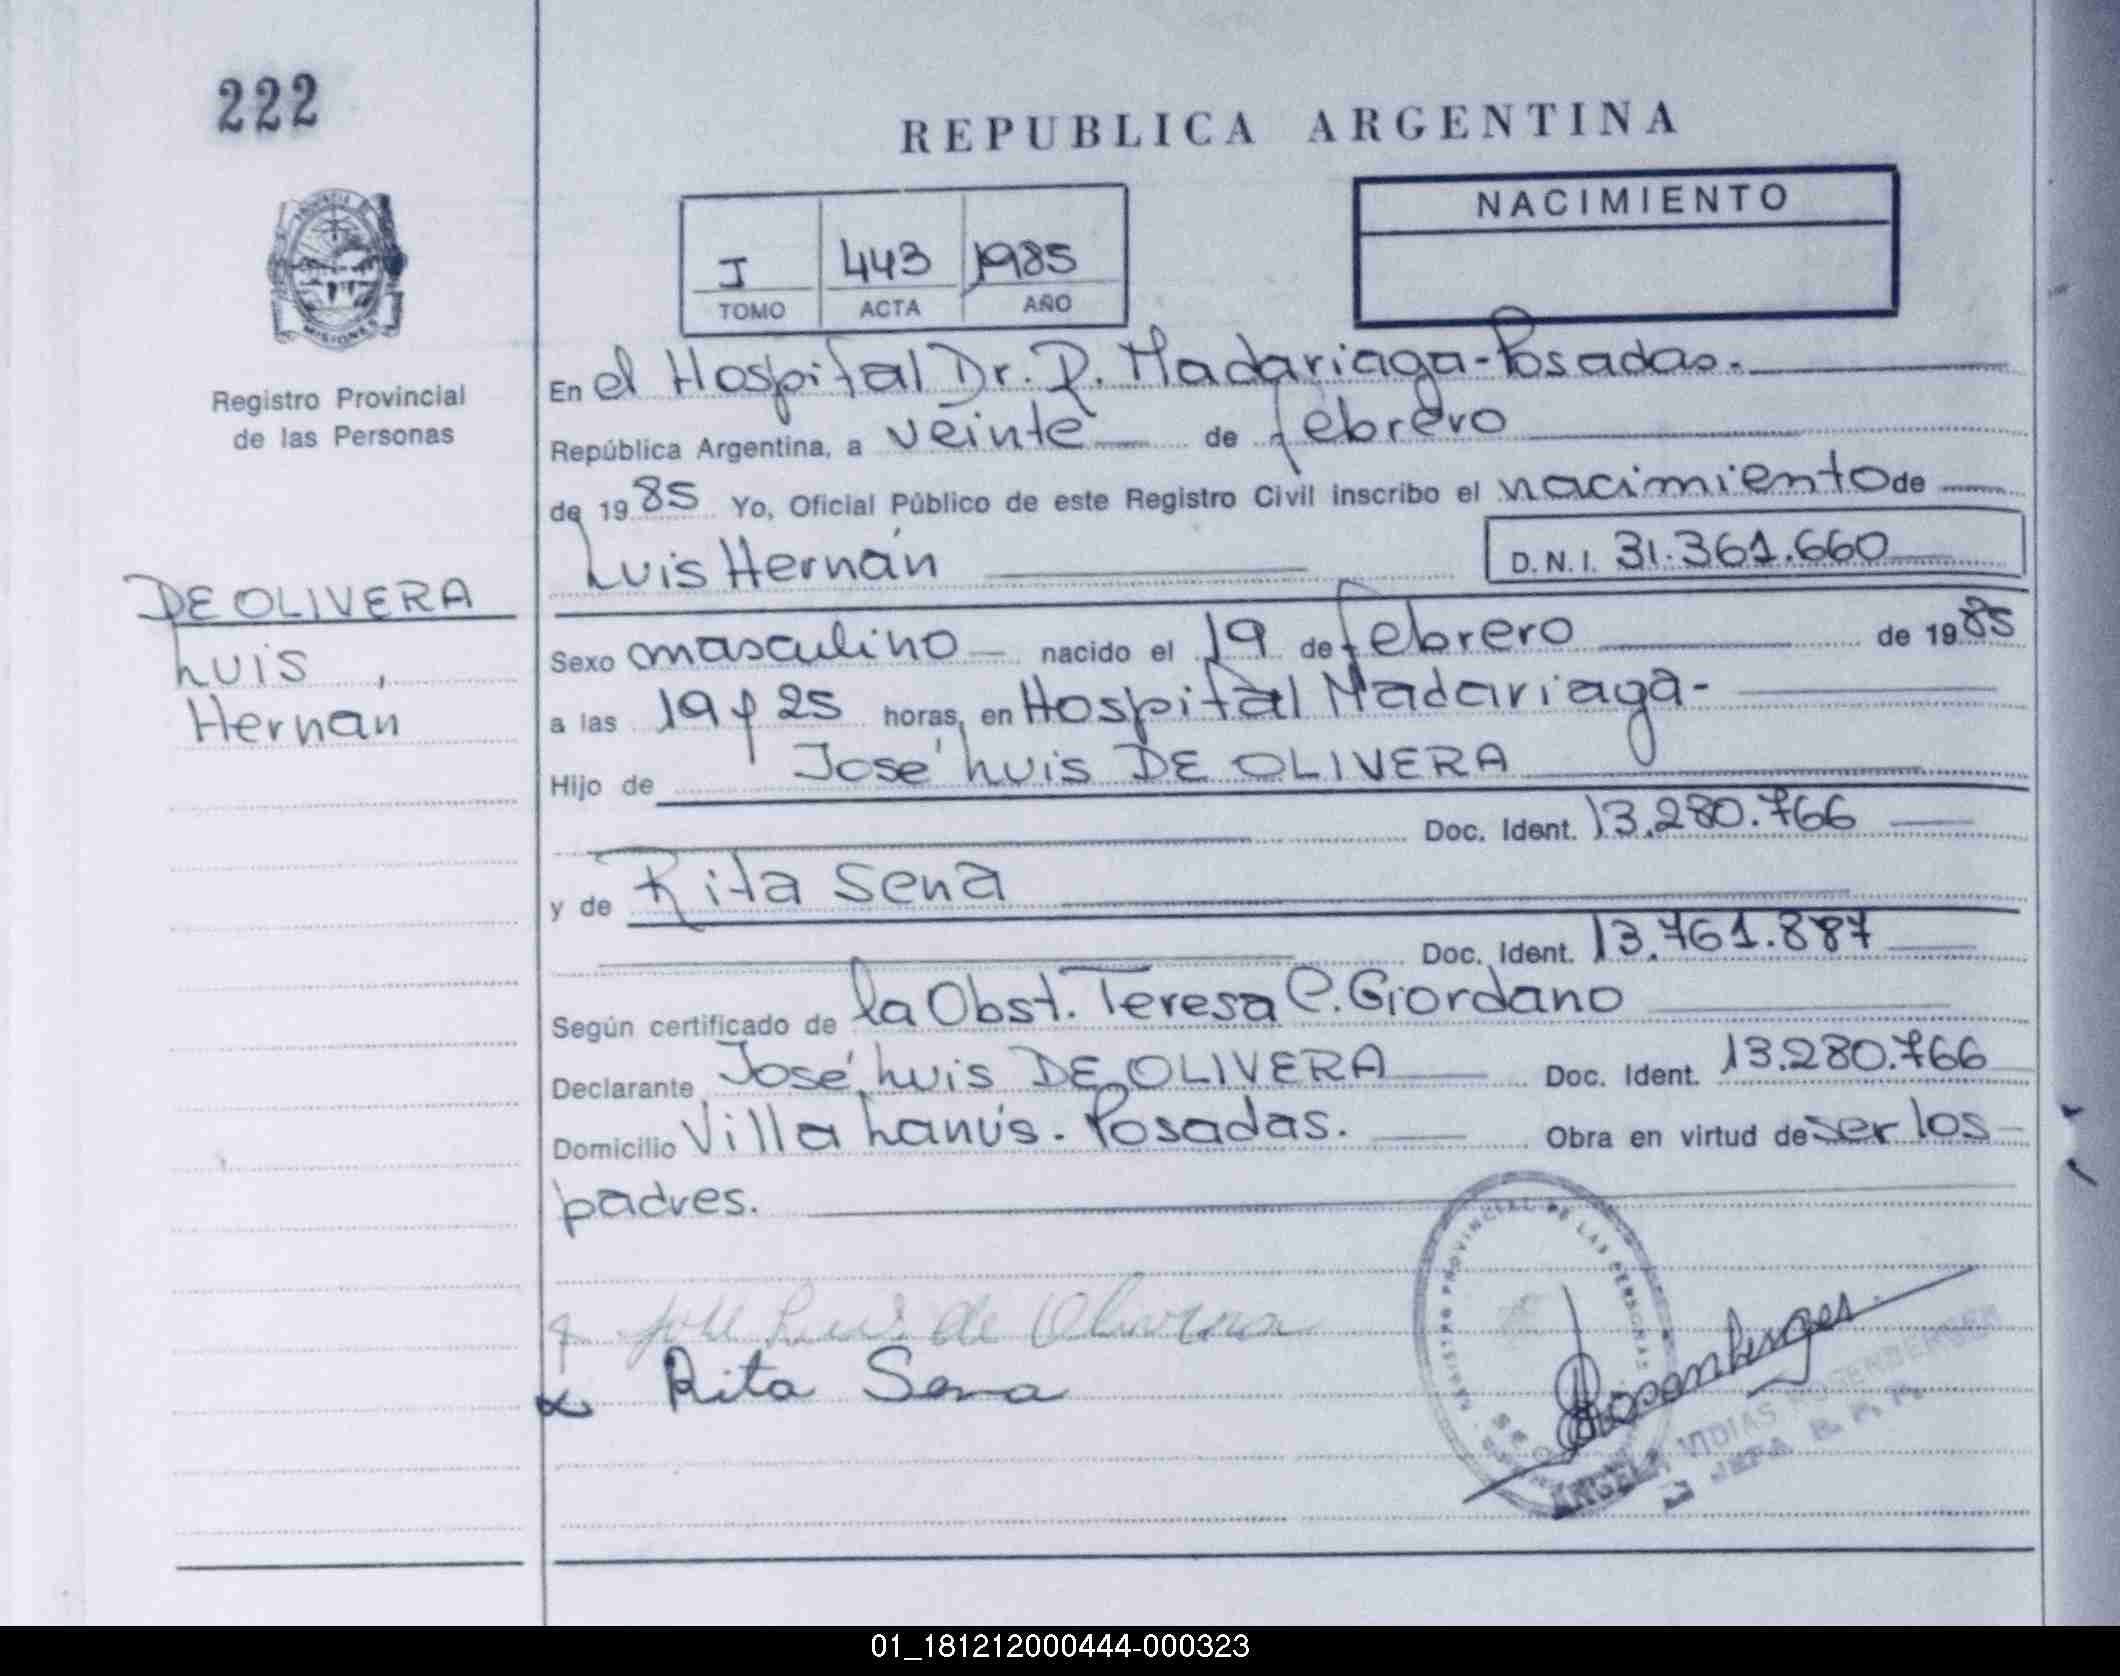 222
REPUBLICA ARGENTINA
NACIMIENTO
I 443 1985
TOMO ACTA AÑO
MISIONES
Registro Provincial
de las Personas
En el Hospital Dr. R. Madariaga-Posadas.
República Argentina, a veinte de febrero
de 1985 Yo, Oficial Público de este Registro Civil inscribo el nacimiento de
Luis Hernán D.N.I. 31.361.660
DE OLIVERA
Luis,
Hernan
Sexo masculino nacido el 19 de febrero de 1985
a las 19 y 25 horas, en Hospital Madariaga-
Hijo de José Luis DE OLIVERA
Doc. Ident. 13.280.766
y de Rita Sena
Doc. Ident. 13.761.887
Según certificado de la Obst. Teresa C. Giordano
Declarante José Luis DE OLIVERA Doc. Ident. 13.280.766
Domicilio Villa Lanús. Posadas. Obra en virtud de ser los
padres.
José Luis de Olivera
Rita Sena
REGISTRO PROVINCIAL DE LAS PERSONAS
Rosenberger
ANGELA VIDIAS ROSENBERGER
JEFA R. P. P.
01_181212000444-000323